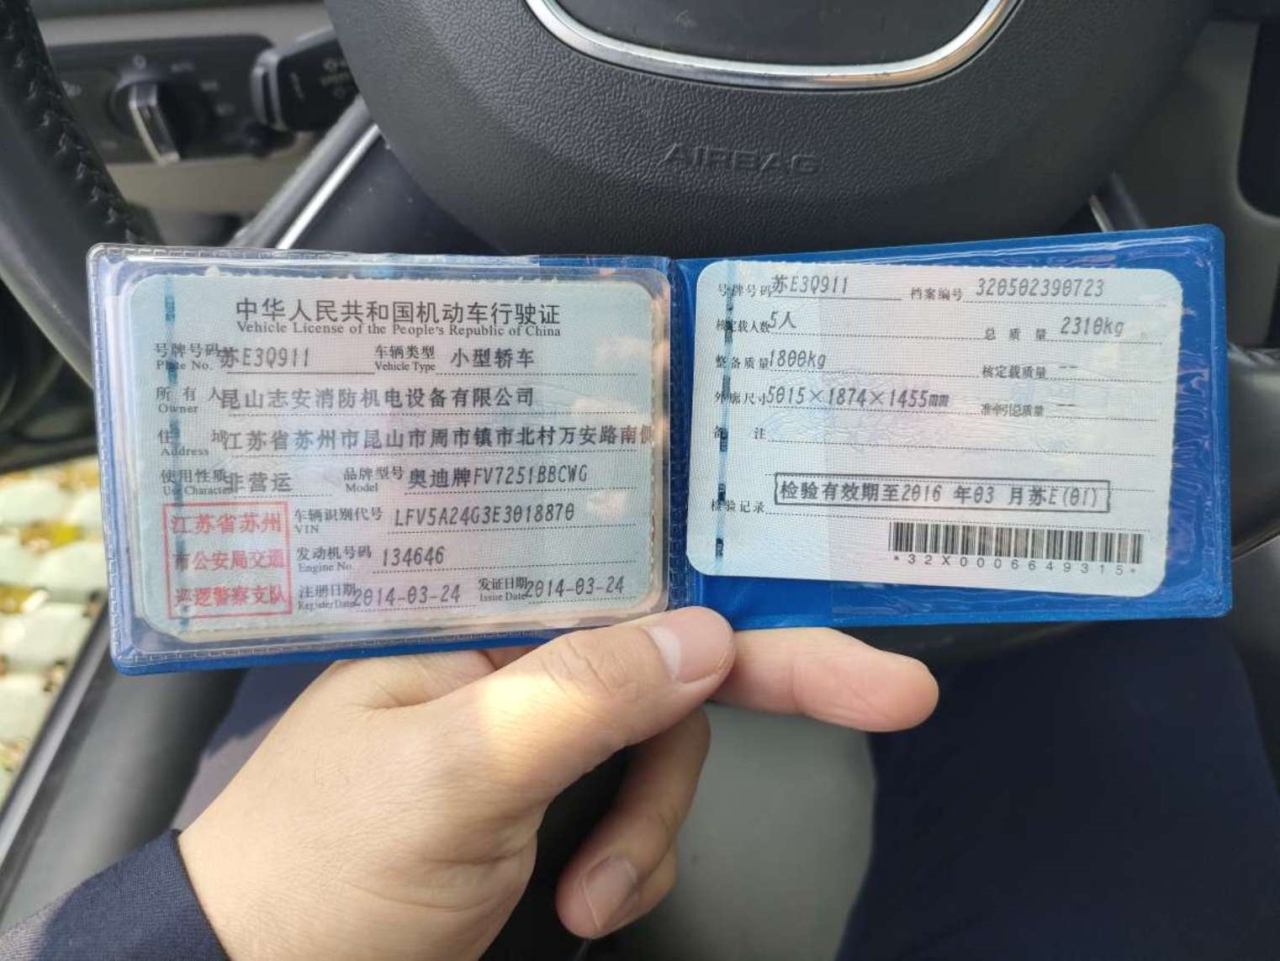 AIRBAG
中华人民共和国机动车行驶证
Vehicle License of the People's Republic of China
号牌号码 苏E3Q911 车辆类型 小型轿车
Plate No. Vehicle Type
所有人 昆山志安消防机电设备有限公司
Owner
住址 江苏省苏州市昆山市周市镇市北村万安路南侧
Address
使用性质 非营运 品牌型号 奥迪牌FV7251BBCWG
Use Character Model
江苏省苏州
市公安局交通
巡逻警察支队
车辆识别代号 LFV5A24G3E3018870
VIN
发动机号码 134646
Engine No.
注册日期 2014-03-24 发证日期 2014-03-24
Register Date Issue Date
号牌号码 苏E3Q911 档案编号 320502390723
核定载人数 5人 总质量 2310kg
整备质量 1800kg 核定载质量 --
外廓尺寸 5015×1874×1455mm 准牵引总质量 --
备注
检验记录 检验有效期至2016年03月苏E(01)
*32X0006649315*